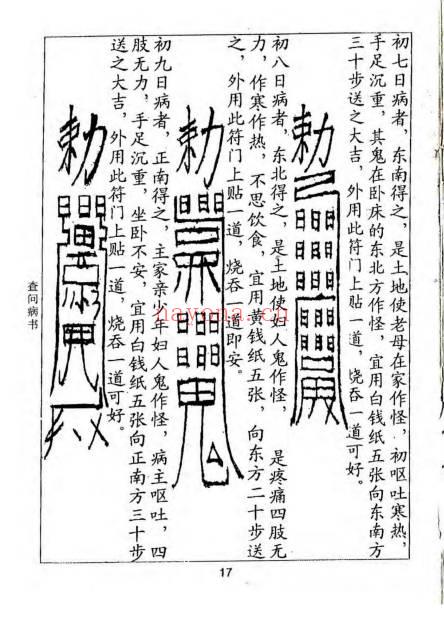 初七日病者，东南得之，是土地使老母在家作怪，初呕吐寒热，
手足沉重，其鬼在卧床的东北方作怪，宜用白钱纸五张向东南方
三十步送之大吉，外用此符门上贴一道，烧吞一道可好。
勅
初八日病者，东北得之，是土地使妇人鬼作怪，是疼痛四肢无
力，作寒作热，不思饮食，宜用黄钱纸五张，向东方二十步送
之，外用此符门上贴一道，烧吞一道即安。
勅
初九日病者，正南得之，主家亲少年妇人鬼作怪，病主呕吐，四
肢无力，手足沉重，坐卧不安，宜用白钱纸五张向正南方三十步
送之大吉，外用此符门上贴一道，烧吞一道可好。
勅
查问病书
17
nayona.cn